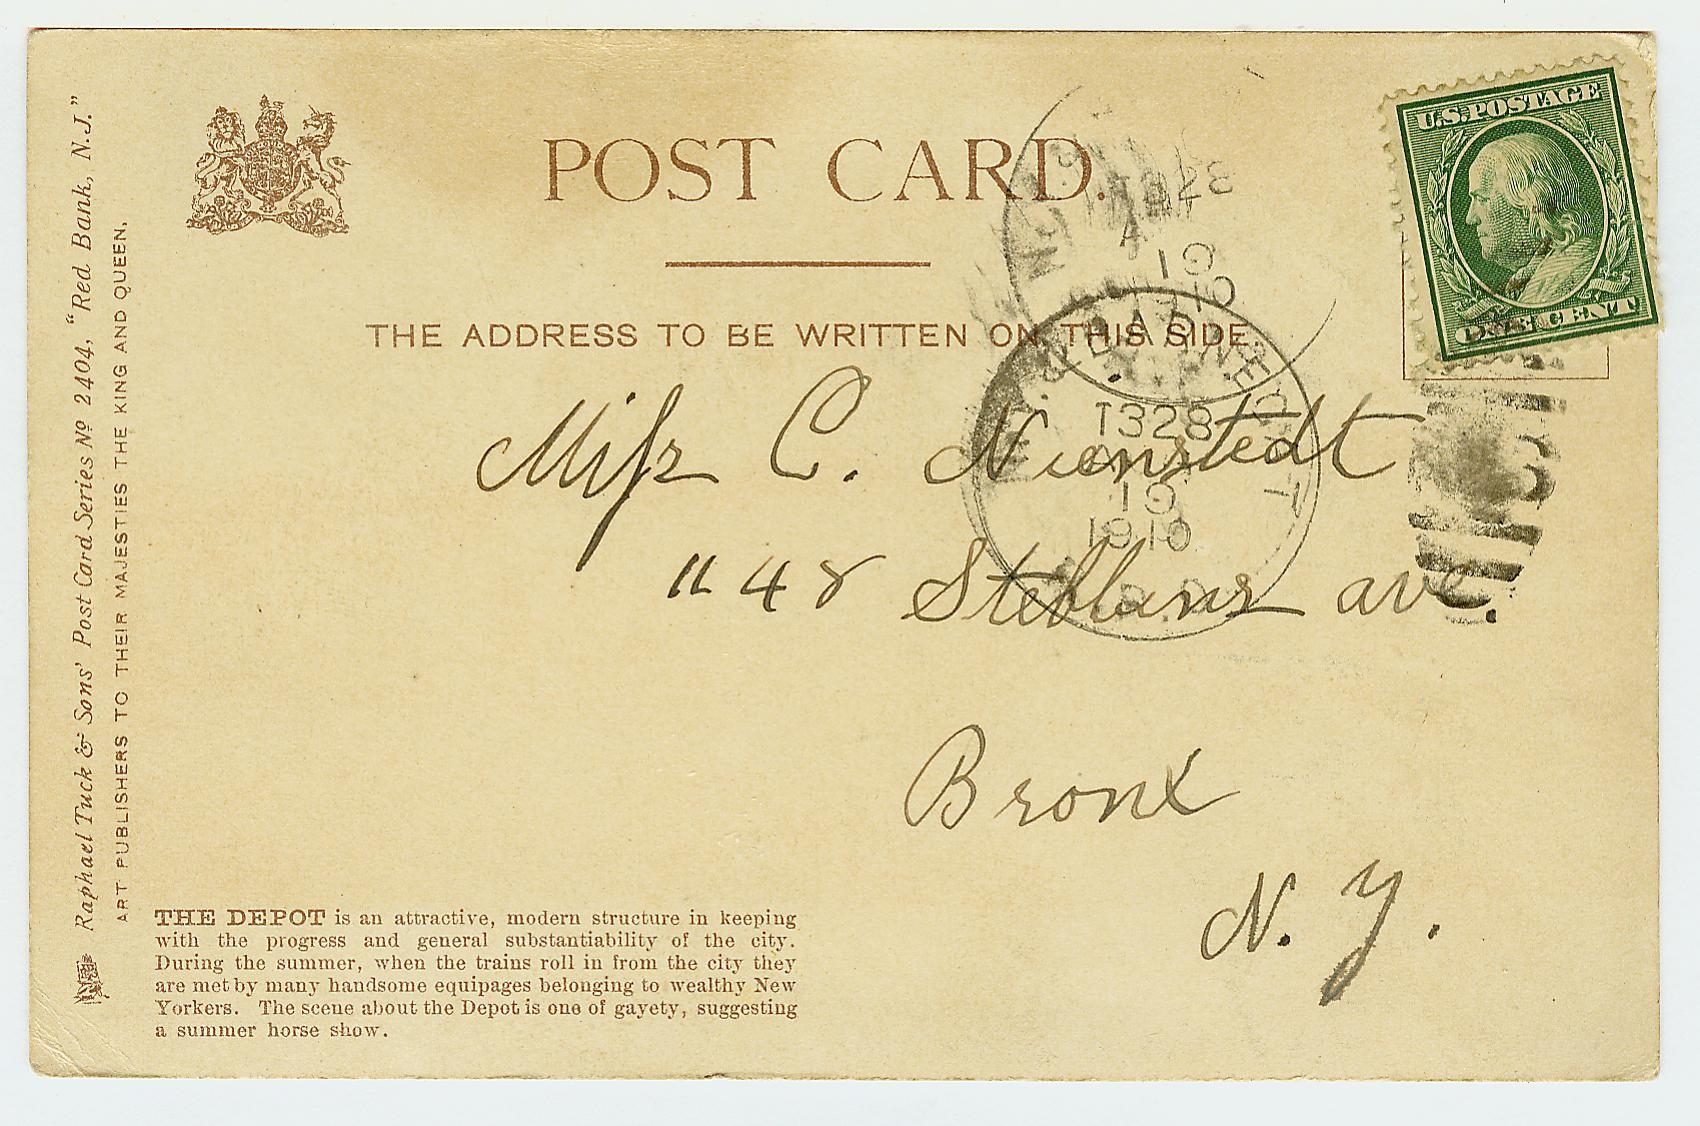 POST CARD.
THE ADDRESS TO BE WRITTEN ON THIS SIDE.
U.S. POSTAGE
T328
19
1910
Miss C. Nienstedt
1148 Stebbins ave.
Bronx
N. Y.
Raphael Tuck & Sons' Post Card Series No 2404, "Red Bank, N.J."
ART PUBLISHERS TO THEIR MAJESTIES THE KING AND QUEEN.
THE DEPOT is an attractive, modern structure in keeping
with the progress and general substantiability of the city.
During the summer, when the trains roll in from the city they
are met by many handsome equipages belonging to wealthy New
Yorkers. The scene about the Depot is one of gayety, suggesting
a summer horse show.